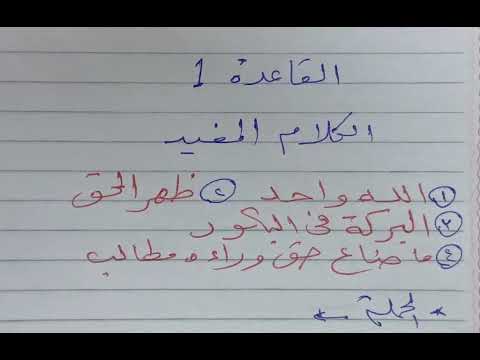 القاعدة 1
الكلام المفيد
① الله واحد ② ظهر الحق
③ البركة في البكور
④ ما ضاع حق وراءه مطالب
* الجملة ←